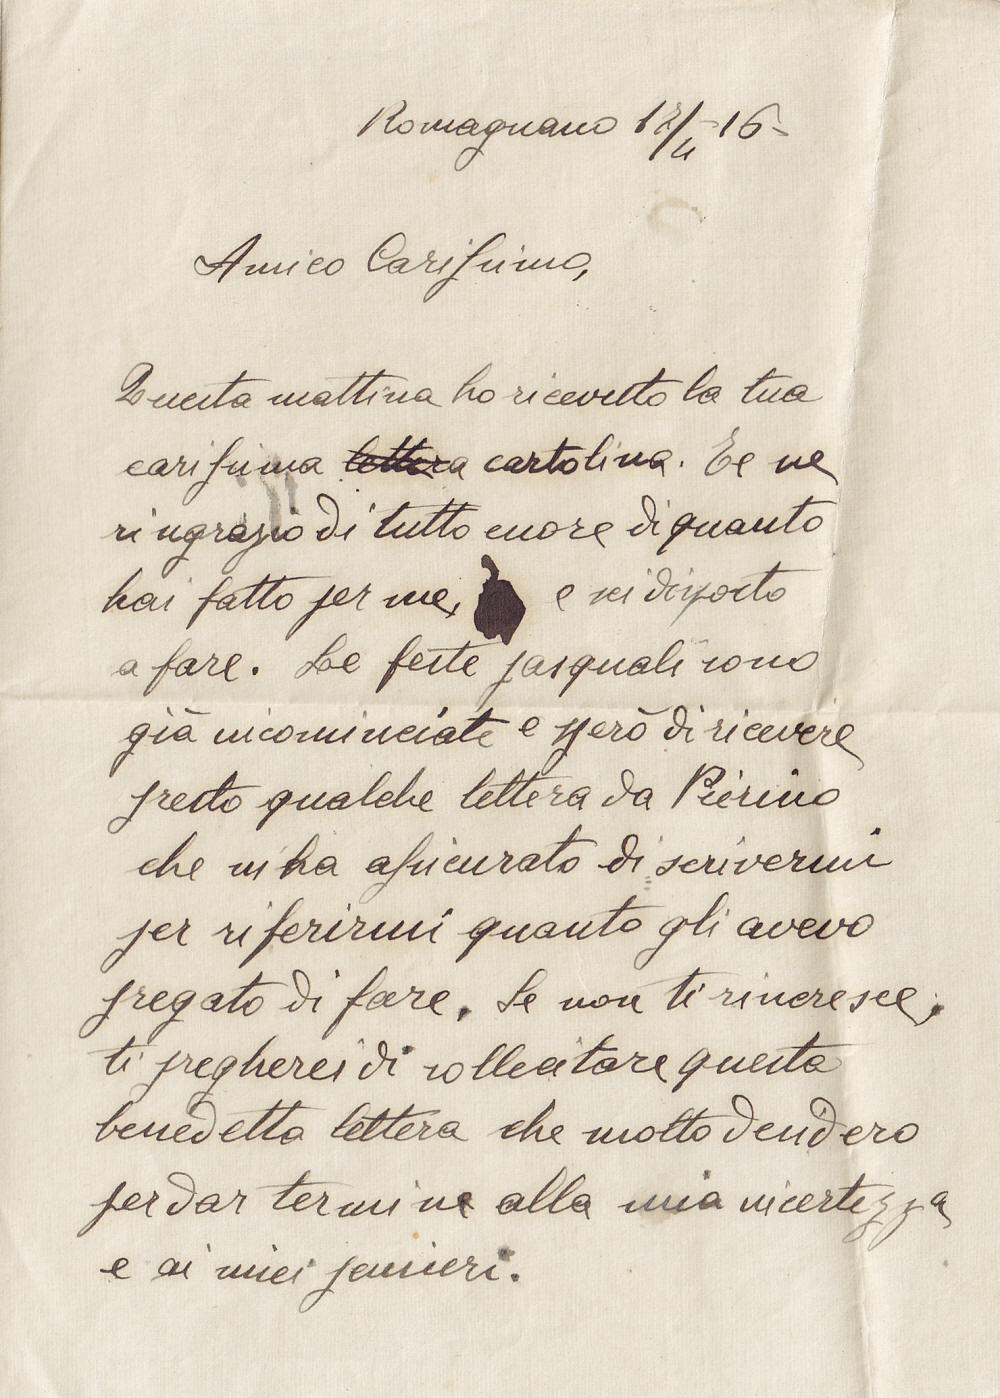 Romagnano 12/4 16-
Amico Carissimo,
Questa mattina ho ricevutto la tua
carissima lettera cartolina. Te ne
ringrazio di tutto cuore di quanto
hai fatto per me, e sei disposto
a fare. Le feste pasquali sono
già incominciate e sperò di ricevere
presto qualche lettera da Pierino
che m'ha assicurato di scrivermi
per riferirmi quanto gli avevo
pregato di fare. Se non ti rincresce,
ti pregherei di sollecitare questa
benedetta lettera che molto desidero
per dar termine alla mia incertezza
e ai miei pensieri.